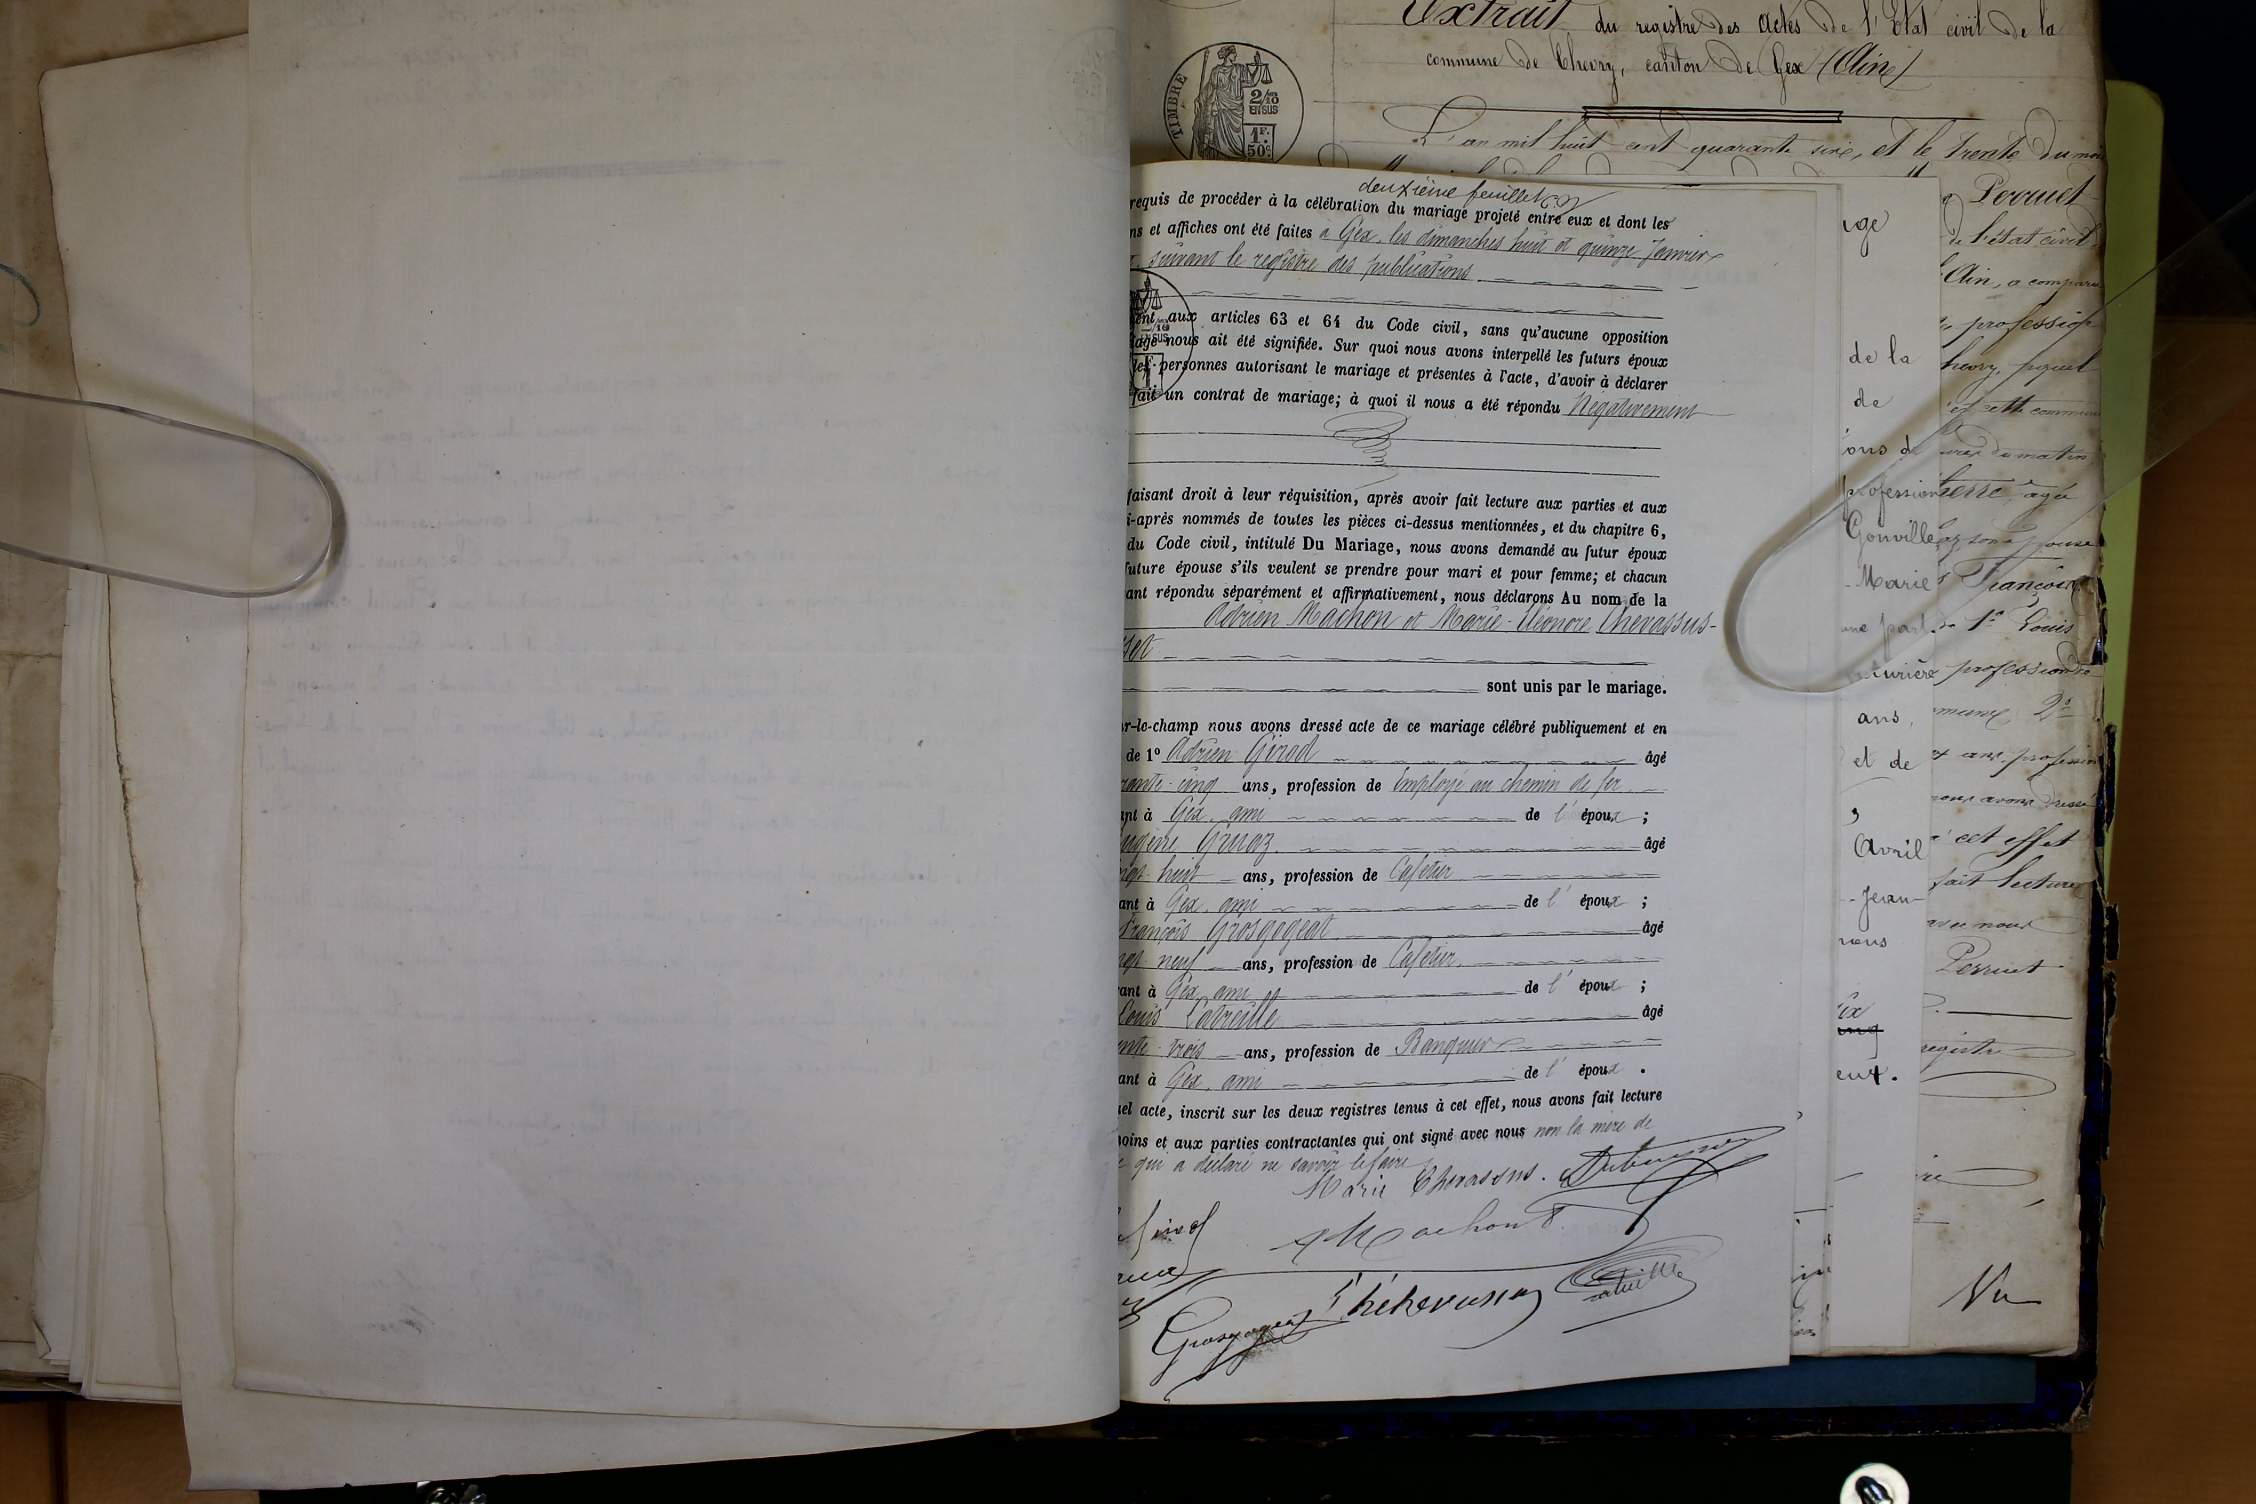 Extrait du registre des actes de l'Etat civil de la
commune de Chevry, canton de Gex (Ain)
TIMBRE
2/10
EN SUS
1F.
50c.
L'an mil huit cent quarante six, et le trente du mois
deuxième feuillet
requis de procéder à la célébration du mariage projeté entre eux et dont les
ns et affiches ont été faites à Gex, les dimanches huit et quinze Janvier
suivant le registre des publications
ent aux articles 63 et 64 du Code civil, sans qu'aucune opposition
iage nous ait été signifiée. Sur quoi nous avons interpellé les futurs époux
les personnes autorisant le mariage et présentes à l'acte, d'avoir à déclarer
fait un contrat de mariage; à quoi il nous a été répondu Négativement
faisant droit à leur réquisition, après avoir fait lecture aux parties et aux
i-après nommés de toutes les pièces ci-dessus mentionnées, et du chapitre 6,
du Code civil, intitulé Du Mariage, nous avons demandé au futur époux
future épouse s'ils veulent se prendre pour mari et pour femme; et chacun
ant répondu séparément et affirmativement, nous déclarons Au nom de la
Adrien Machon et Marie-Eléonore Chevassus-
set
sont unis par le mariage.
ur-le-champ nous avons dressé acte de ce mariage célébré publiquement et en
de 1º Adrien Girod âgé
rante-cinq ans, profession de Employé au chemin de fer
ant à Gex, ami de l'époux ;
ugène Gruaz âgé
ngt huit ans, profession de Cafetier
ant à Gex, ami de l'époux ;
François Grosgogeat âgé
ngt neuf ans, profession de Cafetier
rant à Gex, ami de l'époux ;
Louis Latreille âgé
ente trois ans, profession de Banquier
ant à Gex, ami de l'époux .
uel acte, inscrit sur les deux registres tenus à cet effet, nous avons fait lecture
oins et aux parties contractantes qui ont signé avec nous non la mère de
qui a déclaré ne savoir le faire
Marie Chevassus.
Machon
Grosgogeat
Latreille
age
de la
de
ons d
profession
Gonville
Marie
une part
turière
ans,
et de
Avril
Jean-
nous
eux.
Perruet
de l'état civil
Ain, a comparu
profession
cette commune
du matin
agée
son épouse
François
de 1º Louis
profession de
2º
ans, profession
nous avons dressé
cet effet
fait lecture
avec nous
Perruet
registre
Vu